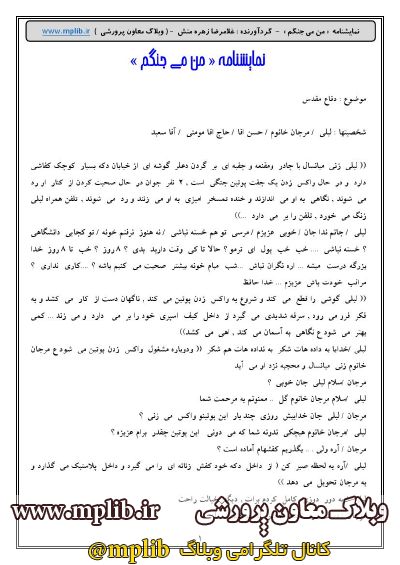 نمایشنامه « من می جنگم » - گردآورنده : غلامرضا زهره منش - ( وبلاگ معاون پرورشی ) www.mplib.ir
نمایشنامه « من می جنگم »
موضوع : دفاع مقدس
شخصیتها : لیلی / مرجان خانوم / حسن اقا / حاج اقا مومنی / آقا سعید
(( لیلی زنی میانسال با چادر ومقنعه و جفیه ای بر گردن دهلر گوشه ای از خیابان دکه بسیار کوچک کفاشی
دارد و در حال واکس زدن یک جفت پوتین جنگی است , ۲ نفر جوان در حال صحبت کردن از کنار او رد
می شوند , نگاهی به او می اندازند و خنده تمسخر امیزی به او می زنند و رد می شوند , تلفن همراه لیلی
زنگ می خورد , تلفن را بر می دارد ...))
لیلی / جانم ندا جان / خوبی عزیزم / مرسی تو هم خسته نباشی / نه هنوز نرفتم خونه / تو کجایی دانشگاهی
؟ خسته نباشی .... خب خب پول ای ترمو ؟ حالا تا کی وقت دارید بدی ؟ ۸ روز ؟ خب تا ۸ روز خدا
بزرگه درست میشه ... اره نگران نباش ...شب میام خونه بیشتر صحبت می کنیم باشه ؟ ....کاری نداری ؟
مراتب خودت باش عزیزم ... خدا حافظ
(( لیلی گوشی را قطع می کند و شروع به واکس زدن پوتین می کند , ناگهان دست از کار می کشد و به
فکر فرو می رود , سرفه شدیدی می گیرد از داخل کیف اسپری خود را بر می دارد و می زند ... کمی
بهتر می شود ع نگاهی به آسمان می کند , اهی می کشد))
لیلی /خدایا به داده هات شکر به نداده هات هم شکر (( ودوباره مشغول واکس زدن پوتین می شود ع مرجان
خانوم زنی میانسال و محجبه نزد او می آید
مرجان /سلام لیلی جان خوبی ؟
لیلی /سلام مرجان خانوم گل .. ممنونم به مرحمت شما
مرجان / لیلی جان خداییش روزی چند بار این پوتینو واکس می زنی ؟
لیلی /مرجان خانوم هیچکی ندونه شما که می دونی این پوتین چقدر برام عزیزه ؟
مرجان / آره ولی ... بگذریم کفشهام آماده است ؟
لیلی /آره یه لحظه صبر کن ( از داخل دکه خود کفش زنانه ای را می گیرد و داخل پلاستیک می گذارد و
به مرجان تحویل می دهد ))
دور دوزی کامل کردم برات , دیگه خیالت راحت
وبلاگ معاون پرورشی www.mplib.ir
کانال تلگرامی وبلاگ @mplib